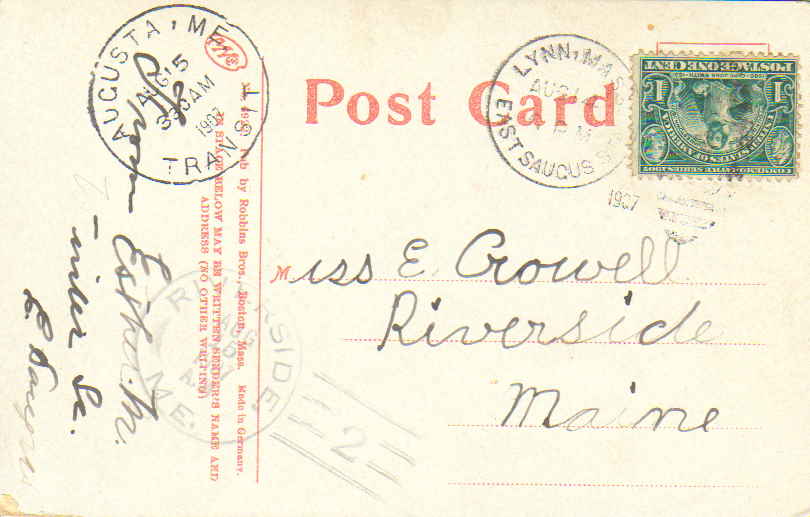 AUGUSTA, ME.
AUG 5
330AM
1907
TRANSIT
Post Card
LYNN, MASS
AUG 4
PM
EAST SAUGUS
1907
1 POSTAGE ONE CENT 1
UNITED STATES OF AMERICA
COMMEMORATIVE SERIES 1907
Miss E. Crowell
Riverside
Maine
RIVERSIDE
AUG
5
ME.
2
Pub by Robbins Bros., Boston, Mass. Made in Germany.
IN SPACE BELOW MAY BE WRITTEN SENDER'S NAME AND
ADDRESS (NO OTHER WRITING)
From
Esther M.